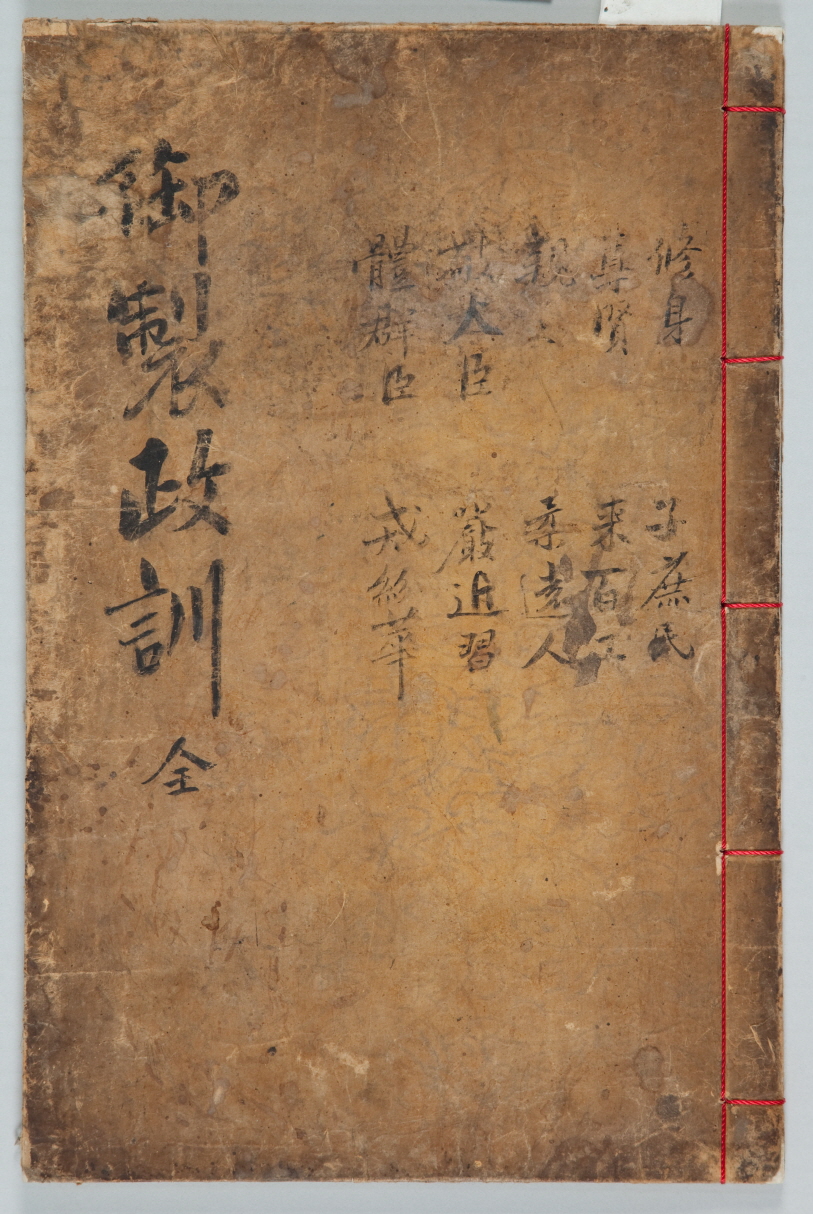 修身
尊賢
親〻
敬大臣
體群臣
子庶民
來百工
柔遠人
嚴近習
戒紛華
御製政訓 全